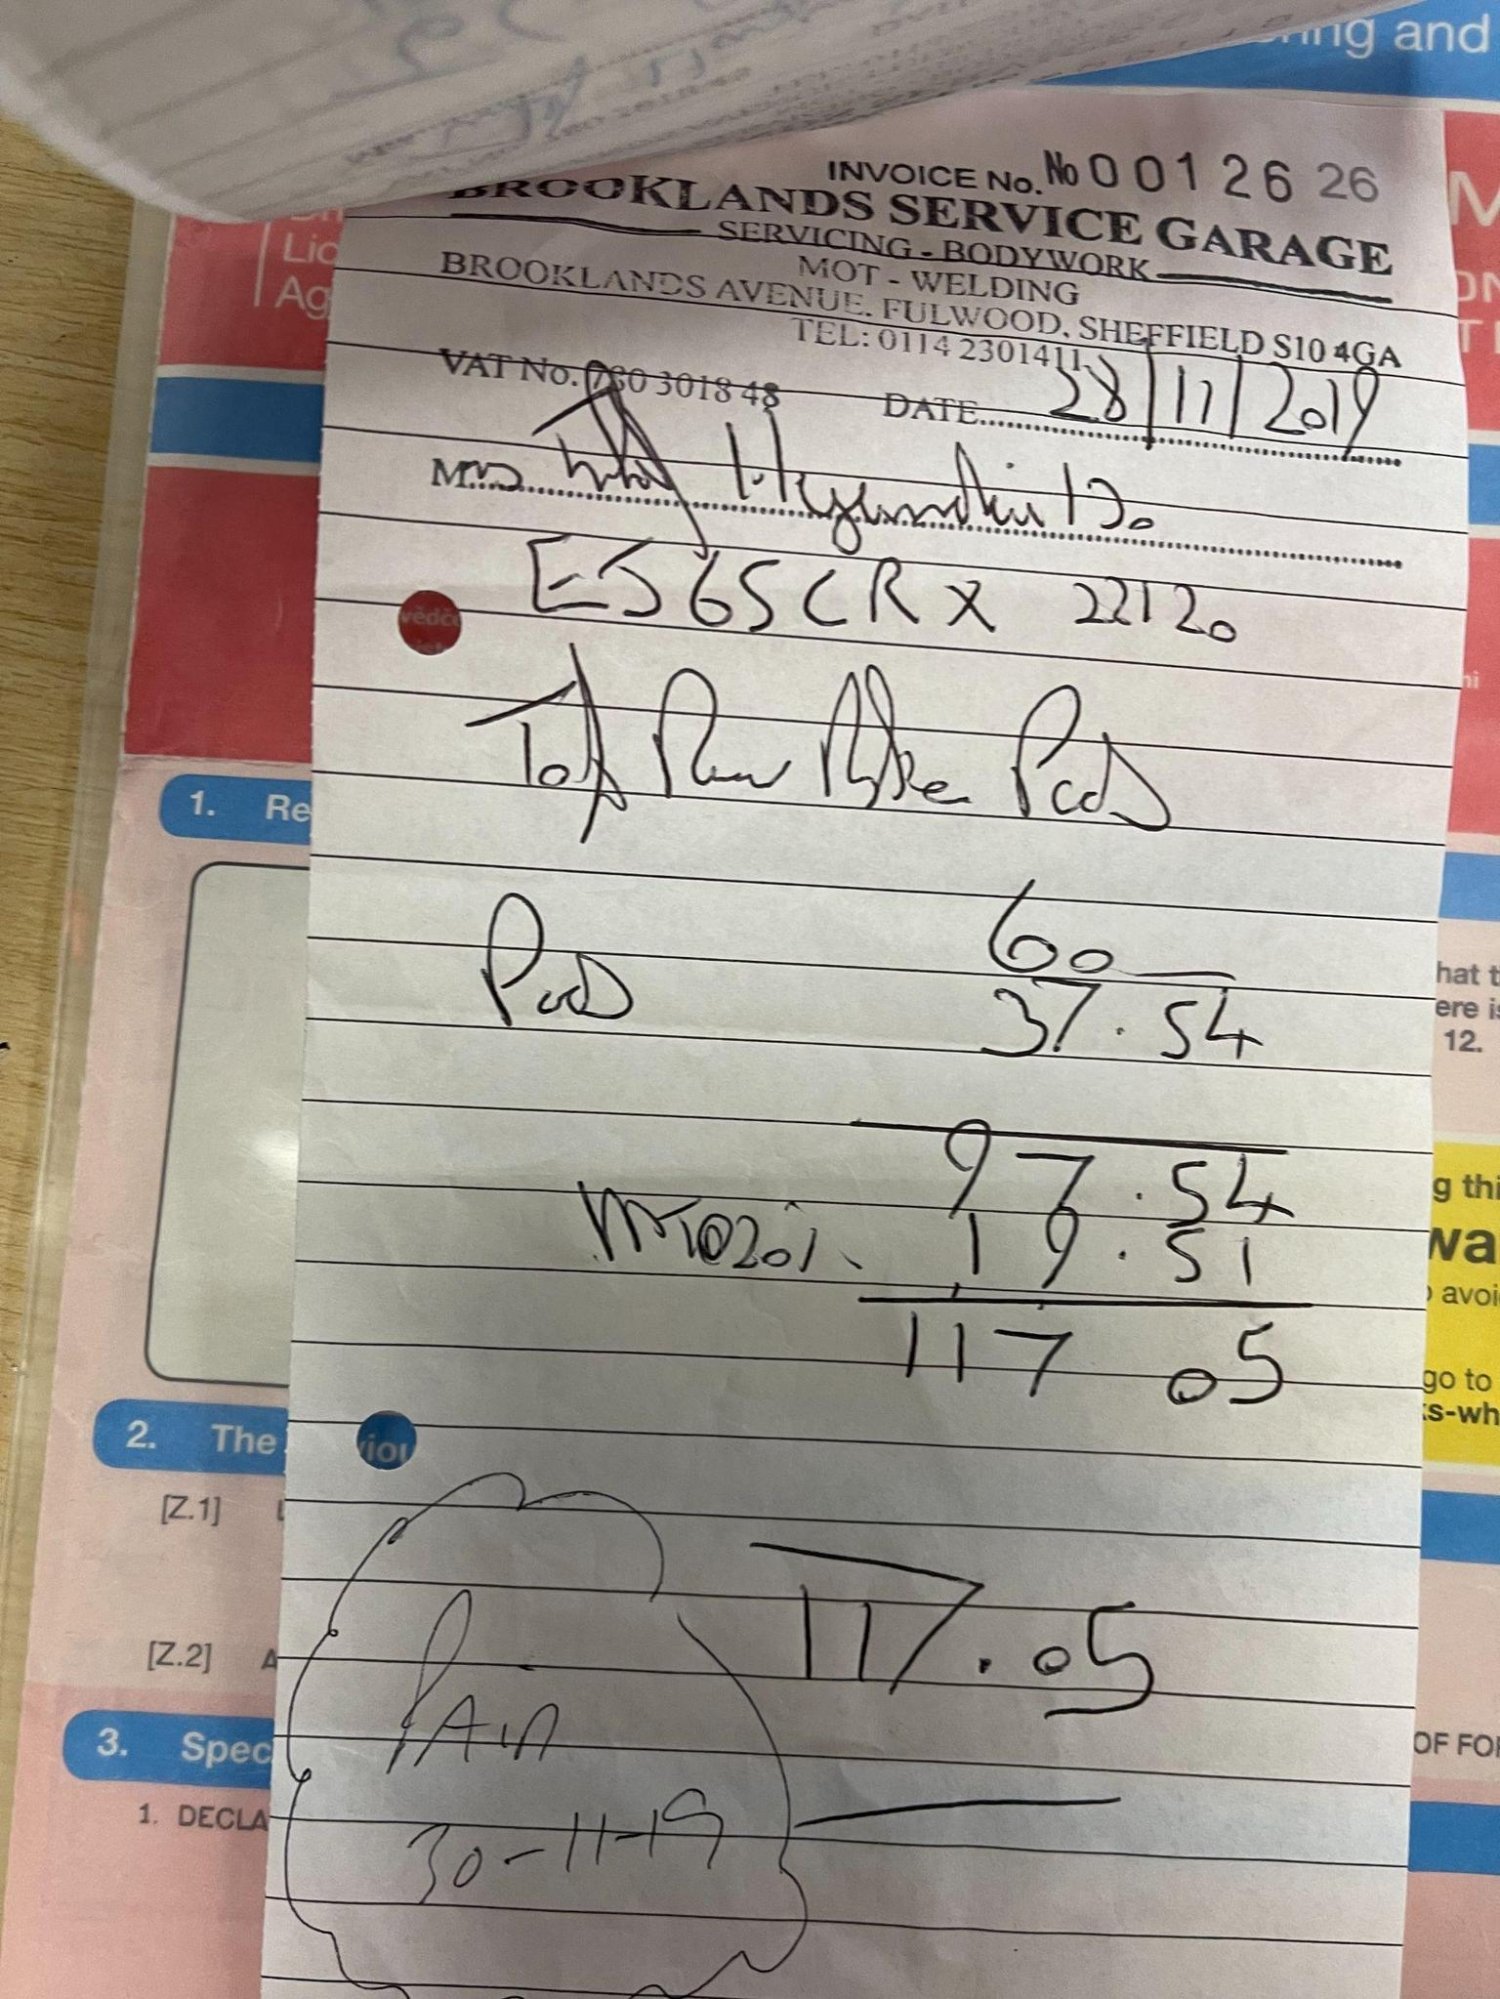 ing and
INVOICE No. No 0012626
BROOKLANDS SERVICE GARAGE
SERVICING - BODYWORK
MOT - WELDING
BROOKLANDS AVENUE. FULWOOD. SHEFFIELD S10 4GA
TEL: 0114 2301411
VAT No. 780 3018 48 DATE 28/11/2019
Mrs Hyundai 
ES65CRX 22120
Brake Pads
60
Pads 37.54
97.54
20% 19.51
117 05
117.05
PAID
30-11-19
Lic
Ag
1. Re
2. The
[Z.1]
[Z.2] A
3. Spec
1. DECLA
hat t
ere is
12.
g thi
wa
avoi
go to
s-wh
OF FOR